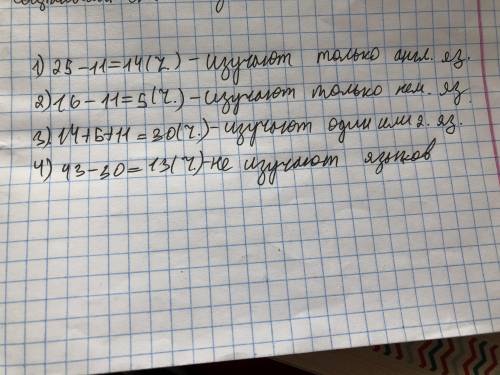 1) 25-11=14(ч.) - изучают только англ. яз.
2) 16-11=5(ч.) - изучают только нем. яз.
3) 14+5+11=30(ч.) - изучают один или 2. яз.
4) 43-30=13(ч) - не изучают языков